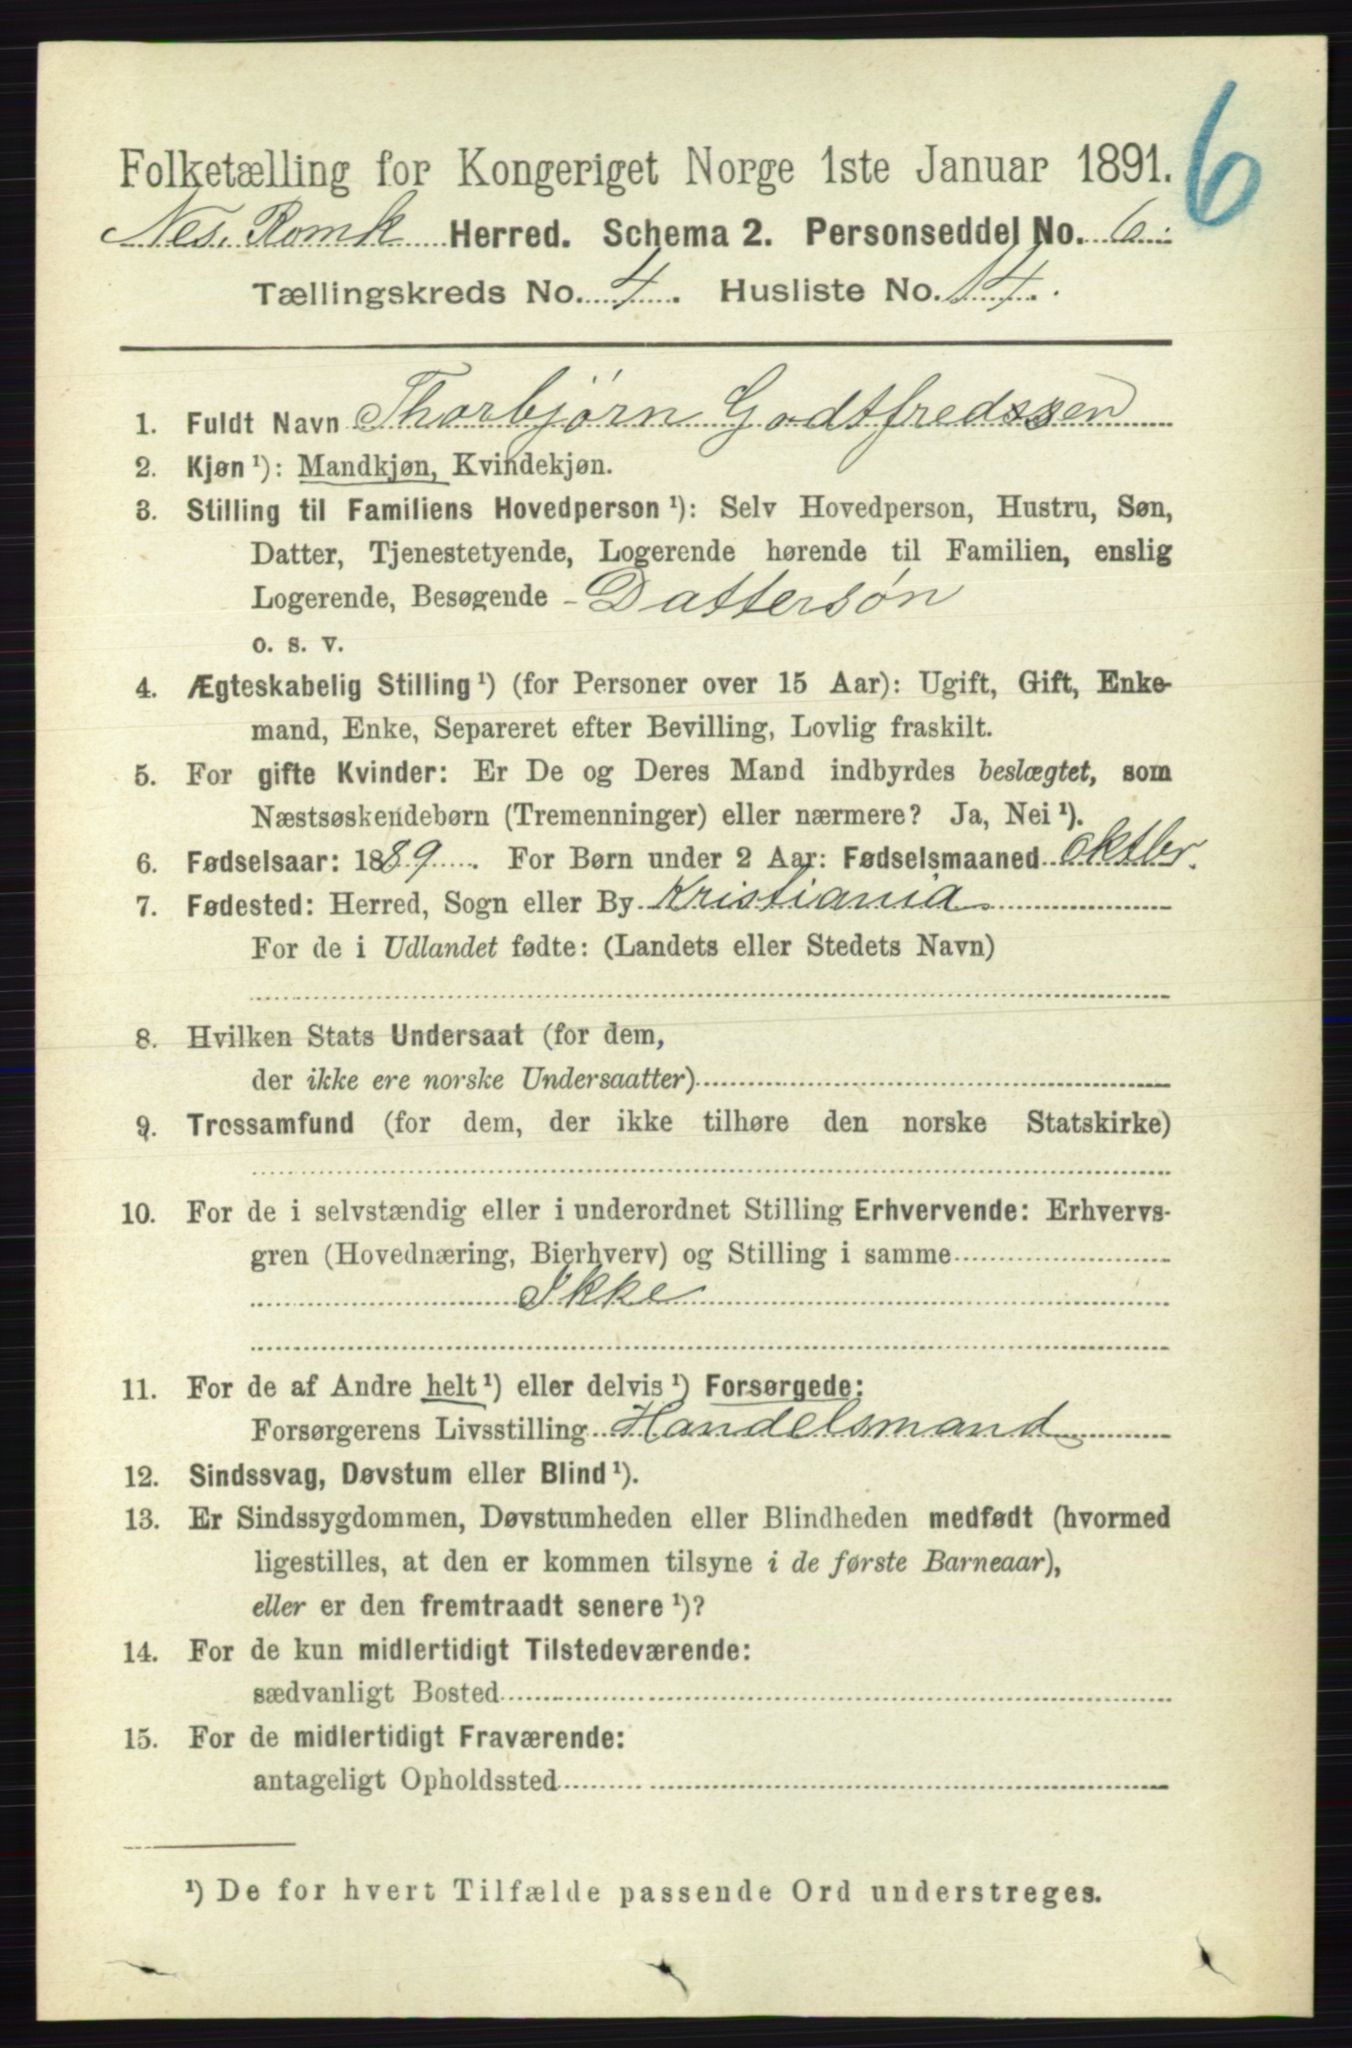 6
Folketælling for Kongeriget Norge 1ste Januar 1891.
Nes. Romk Herred. Schema 2. Personseddel No. 6.
Tællingskreds No. 4. Husliste No. 14.
1. Fuldt Navn Thorbjørn Godtfredssen
2. Kjøn ¹): Mandkjøn, Kvindekjøn.
3. Stilling til Familiens Hovedperson ¹): Selv Hovedperson, Hustru, Søn,
Datter, Tjenestetyende, Logerende hørende til Familien, enslig
Logerende, Besøgende - Dattersøn
o. s. v.
4. Ægteskabelig Stilling ¹) (for Personer over 15 Aar): Ugift, Gift, Enke-
mand, Enke, Separeret efter Bevilling, Lovlig fraskilt.
5. For gifte Kvinder: Er De og Deres Mand indbyrdes beslægtet, som
Næstsøskendebørn (Tremenninger) eller nærmere? Ja, Nei ¹).
6. Fødselsaar: 1889. For Børn under 2 Aar: Fødselsmaaned oktbr.
7. Fødested: Herred, Sogn eller By Kristiania
For de i Udlandet fødte: (Landets eller Stedets Navn)
8. Hvilken Stats Undersaat (for dem,
der ikke ere norske Undersaatter)
9. Trossamfund (for dem, der ikke tilhøre den norske Statskirke)
10. For de i selvstændig eller i underordnet Stilling Erhvervende: Erhvervs-
gren (Hovednæring, Bierhverv) og Stilling i samme
Ikke
11. For de af Andre helt ¹) eller delvis ¹) Forsørgede:
Forsørgerens Livsstilling Handelsmand
12. Sindssvag, Døvstum eller Blind ¹).
13. Er Sindssygdommen, Døvstumheden eller Blindheden medfødt (hvormed
ligestilles, at den er kommen tilsyne i de første Barneaar),
eller er den fremtraadt senere ¹)?
14. For de kun midlertidigt Tilstedeværende:
sædvanligt Bosted
15. For de midlertidigt Fraværende:
antageligt Opholdssted
¹) De for hvert Tilfælde passende Ord understreges.